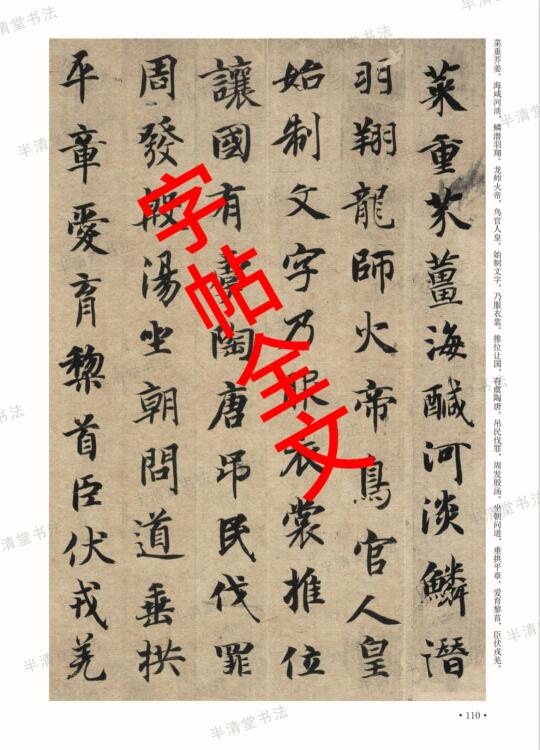 菜重芥姜,海咸河淡,鳞潜羽翔。龙师火帝,鸟官人皇。始制文字,乃服衣裳。推位让国,有虞陶唐。吊民伐罪,周发殷汤。坐朝问道,垂拱平章。爱育黎首,臣伏戎羌。
菜重芥薑海醎河淡鱗潛
羽翔龍師火帝鳥官人皇
始制文字乃服衣裳推位
讓國有虞陶唐吊民伐罪
周發殷湯坐朝問道垂拱
平章愛育黎首臣伏戎羌
字帖全文
·110·
半清堂书法